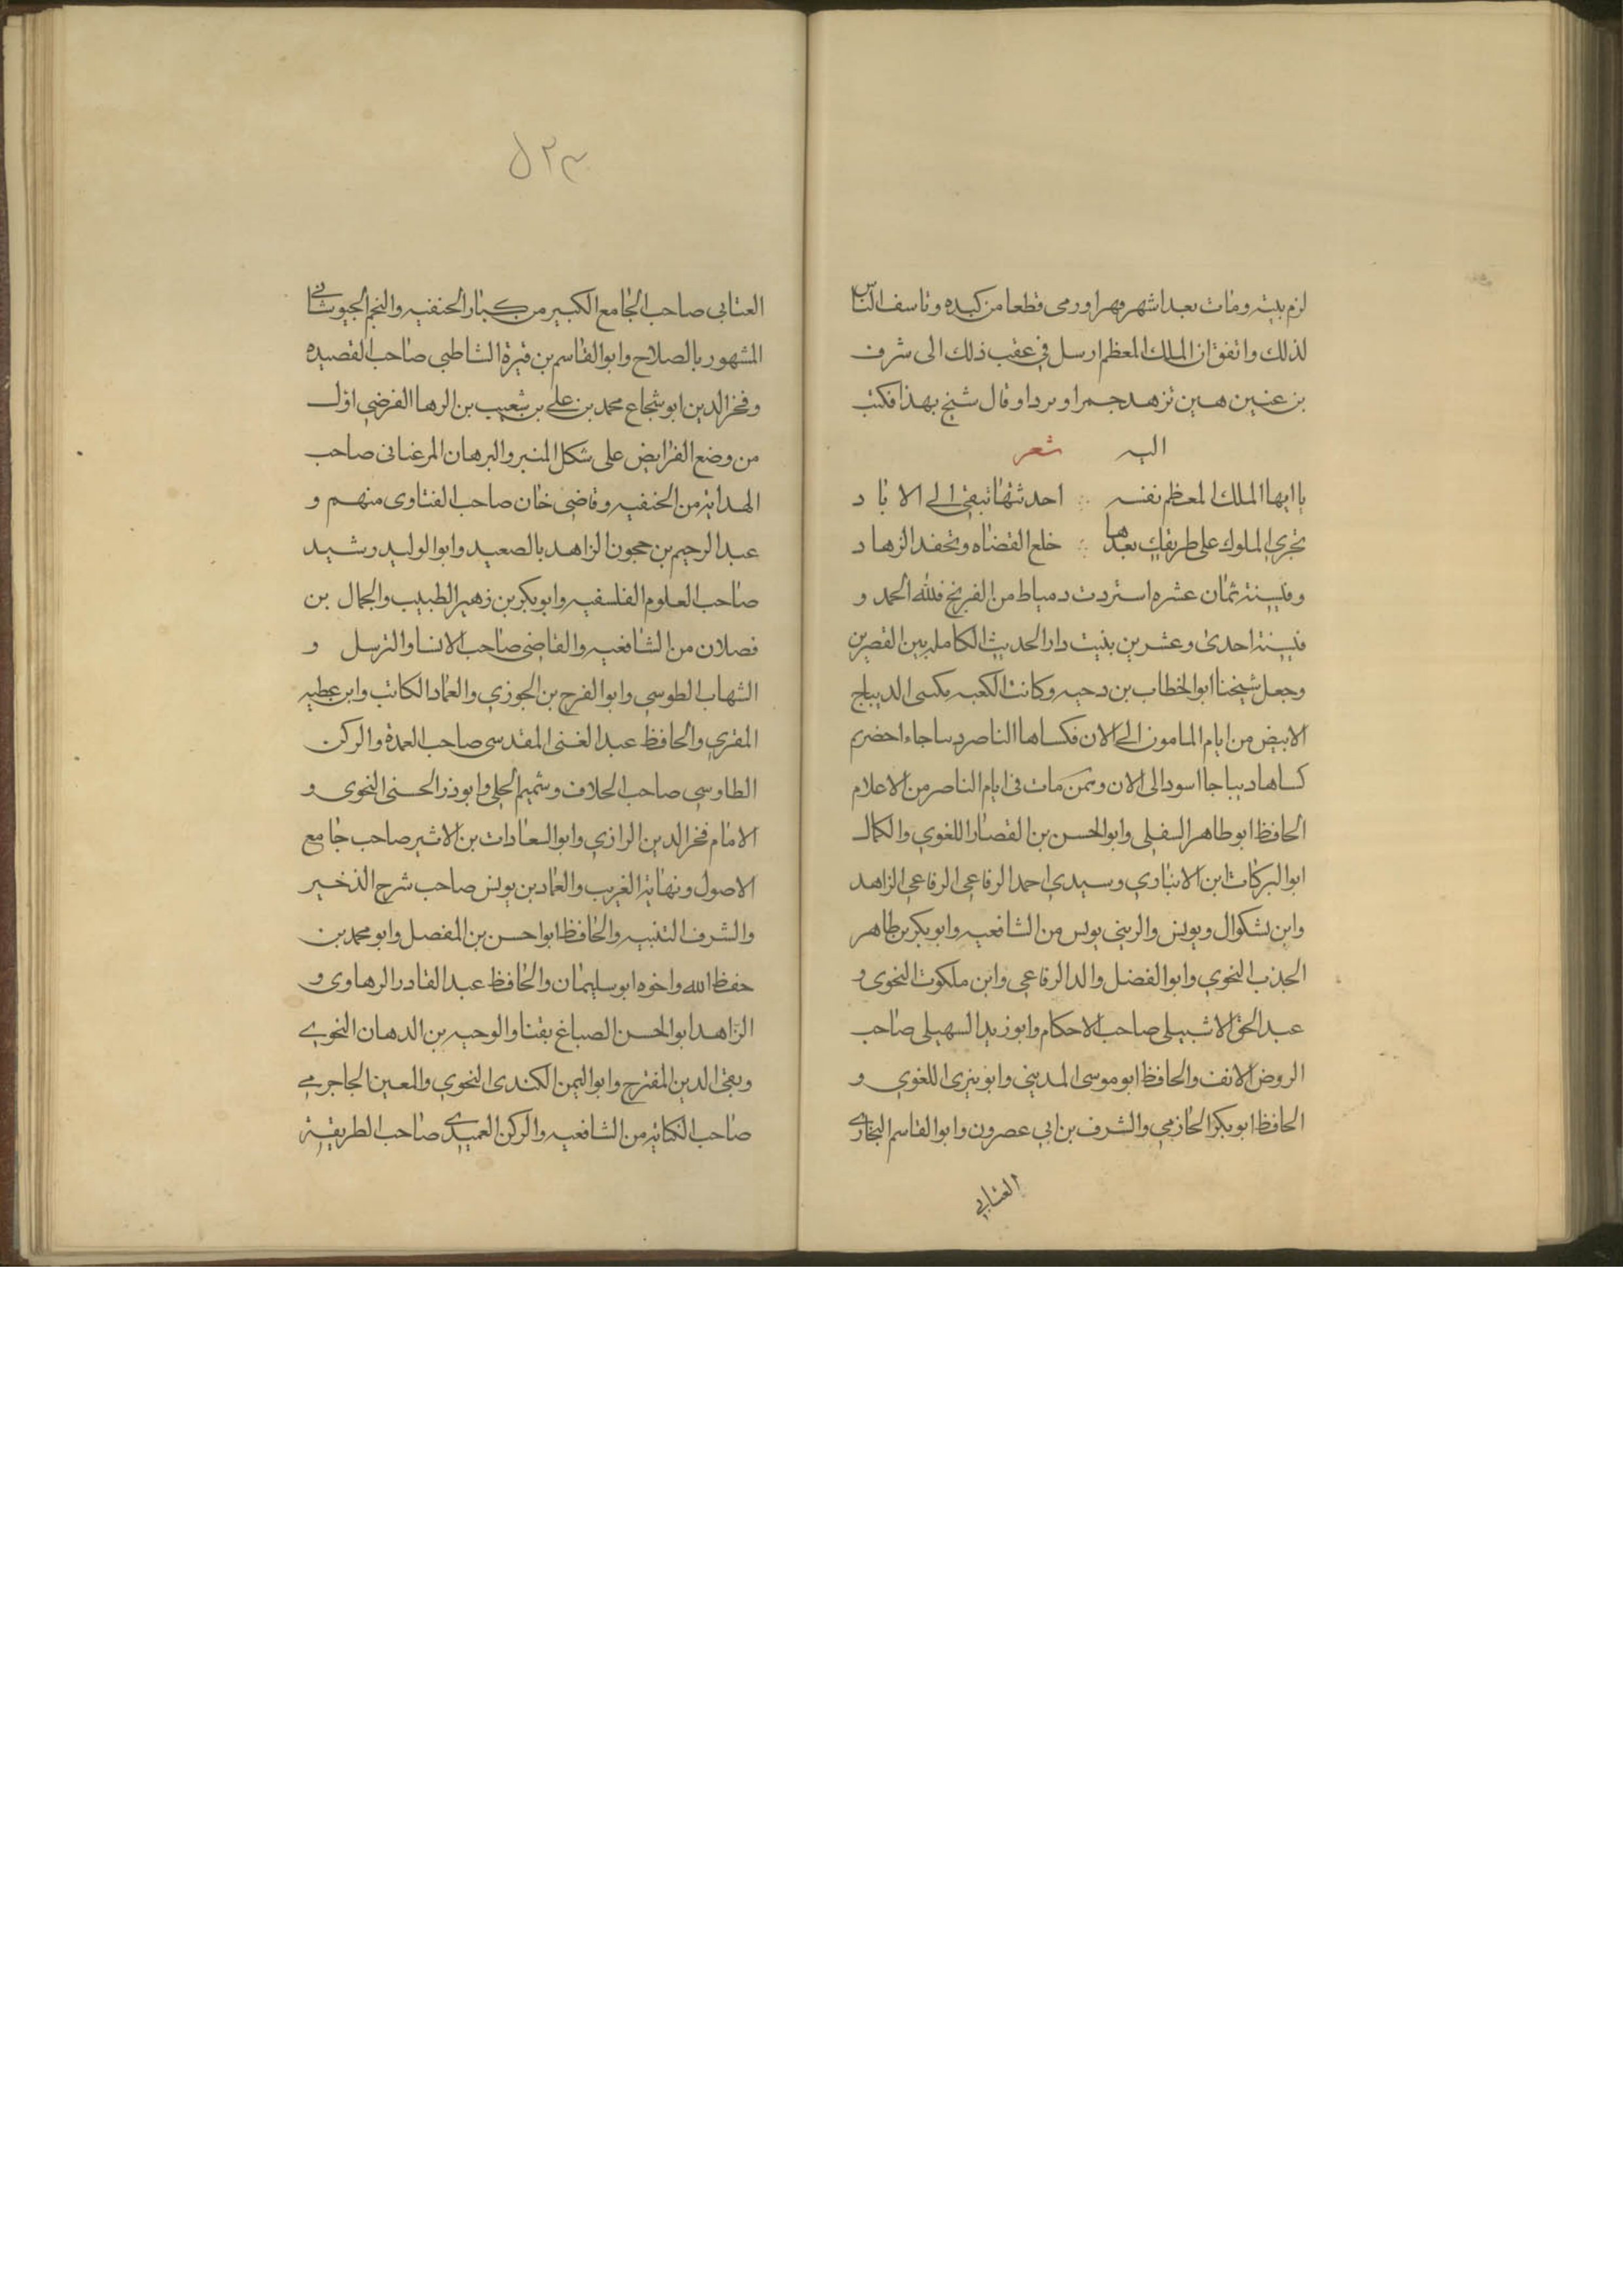 لزم بيته ومات بعد اشهر قهرا ورمى قطعا من كبده وتاسف الناس
لذلك واتفق ان الملك المعظم ارسل في عقب ذلك الى شرف
بن عنين حين تزهد خمرا ونردا وقال سبح بهذا فكتب
اليه شعر
يا ايها الملك المعظم نفسه ∴ احدثتها تبقى الى الاباد
تجري الملوك على طريقك بعدها ∴ خلع القضاه وتحفه الزهاد
وفي سنة ثمان عشره استردت دمياط من الفرنج فلله الحمد و
في سنة احدى وعشرين بنيت دار الحديث الكاملية بين القصرين
وجعل شيخنا ابو الخطاب بن دحيه وكانت الكعبه تكسى الديباج
الابيض من ايام المامون الى الان فكساها الناصر ديباجا اخضر ثم
كساها ديباجا اسود الى الان وممن مات في ايام الناصر من الاعلام
الحافظ ابو طاهر السفلي وابو الحسن بن القصار اللغوي والكمال
ابو البركات ابن الانباري وسيدي احمد الرفاعي الرفاعي الزاهد
وابن بشكوال ويونس والريني يونس من الشافعيه وابو بكر بن طاهر
الجذب النحوي وابو الفضل والد الرفاعي وابن ملكوت النحوي و
عبد الحق الاشبيلي صاحب الاحكام وابو زيد السهيلي صاحب
الروض الانف والحافظ ابو موسى المديني وابو بنرى اللغوي و
الحافظ ابو بكر الحازمي والشرف بن ابي عصرون وابو القاسم البخاري
العتابي
٥٢٣
العتابي صاحب الجامع الكبير من كبار الحنفيه والنجم الجيوشاني
المشهور بالصلاح وابو القاسم بن فيرة الشاطبي صاحب القصيده
وفخر الدين ابو شجاع محمد بن علي بن شعيب بن الرها الفرضي اول
من وضع الفرايض على شكل المنبر والبرهان المرغنانى صاحب
الهداية من الحنفيه وقاضي خان صاحب الفتاوى منهم و
عبد الرحيم بن حجون الزاهد بالصعيد وابو الوليد رشيد
صاحب العلوم الفلسفيه وابو بكر بن زهير الطبيب والجمال بن
فضلان من الشافعيه والقاضي صاحب الانشا والترسل و
الشهاب الطوسي وابو الفرج بن الجوزي والعماد الكاتب وابن عطيه
المقري والحافظ عبد الغنى المقدسى صاحب العمدة والركن
الطاوسي صاحب الخلاف وشميم الحلي وابو ذر الحسنى النحوى و
الامام فخر الدين الرازي وابو السعادات بن الاثير صاحب جامع
الاصول ونهاية الغريب والعماد بن يونس صاحب شرح الذخير
والشرف التنبيه والحافظ ابو احسن بن المفصل وابو محمد بن
حفظ الله واخوه ابو سليمان والحافظ عبد القادر الرهاوى و
الزاهد ابو الحسن الصباغ بقنا والوجيه بن الدهان النحوي
وتقي الدين المقترح وابو اليمن الكندى النحوي والمعين الجاجرمي
صاحب الكفاية من الشافعيه والركن العميدي صاحب الطريقة